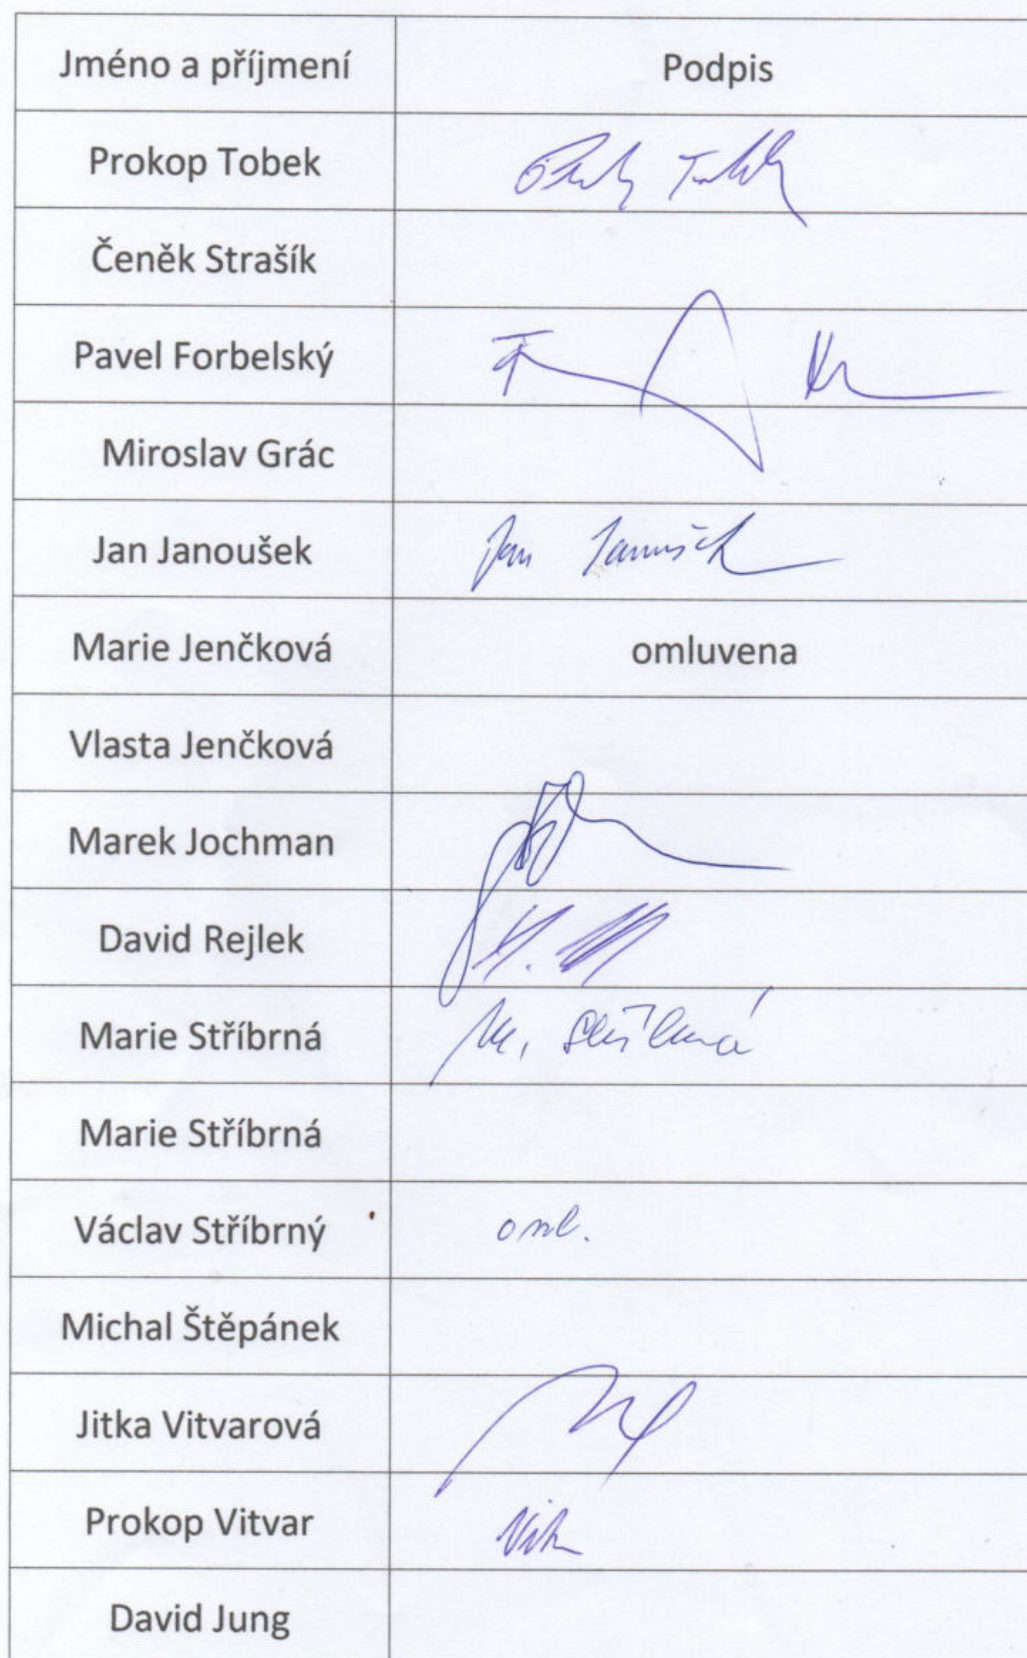 Jméno a příjmení Podpis
Prokop Tobek
Čeněk Strašík
Pavel Forbelský
Miroslav Grác
Jan Janoušek Jan Janoušek
Marie Jenčková omluvena
Vlasta Jenčková
Marek Jochman
David Rejlek
Marie Stříbrná M. Stříbrná
Marie Stříbrná
Václav Stříbrný oml.
Michal Štěpánek
Jitka Vitvarová
Prokop Vitvar
David Jung